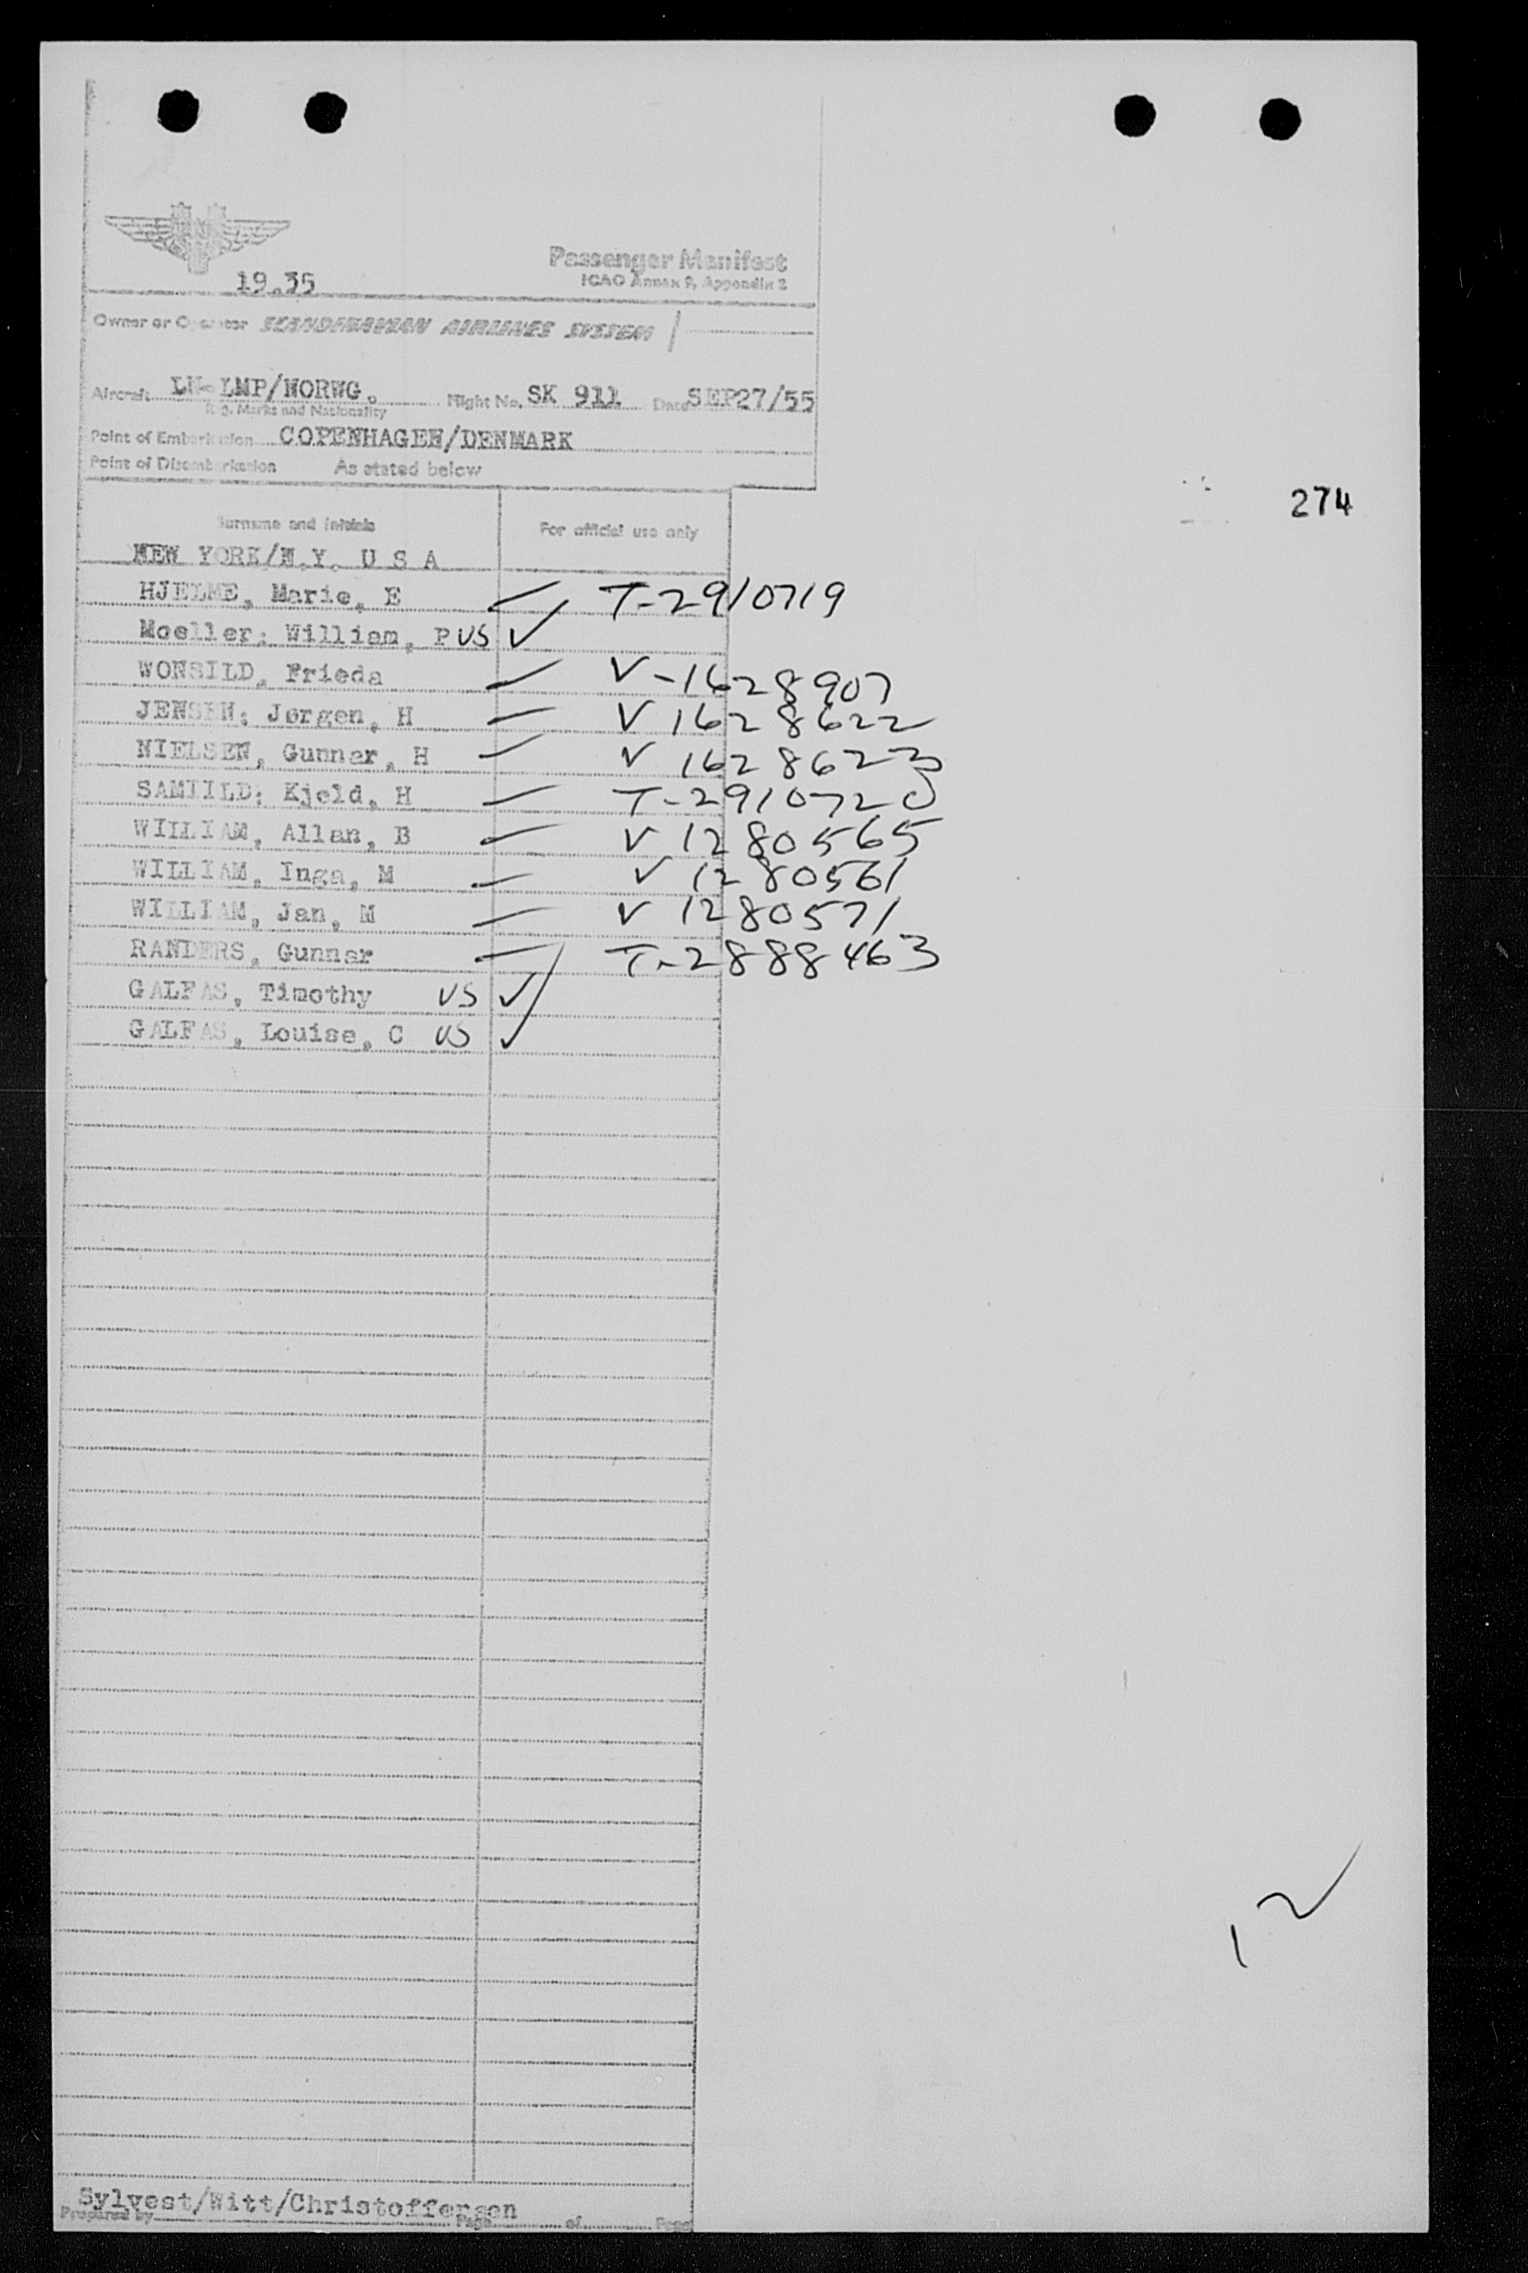 Passenger Manifest
ICAO Annex 9, Appendix 2
19.35
Owner or Operator SCANDINAVIAN AIRLINES SYSTEM
Aircraft LN-LMP/NORWG. Flight No. SK 911 Date SEP27/55
Reg. Marks and Nationality
Point of Embarkation COPENHAGEN/DENMARK
Point of Disembarkation As stated below
274
Surname and initials For official use only
NEW YORK/N.Y. U S A
HJELME, Marie, E T-2910719
Moeller: William, P US
WONSILD, Frieda V-1628907
JENSEN: Jørgen, H V 1628622
NIELSEN, Gunnar, H V 1628623
SAMIILD: Kjeld, H T-2910720
WILLIAM, Allan, B V 1280565
WILLIAM, Inga, M V 1280561
WILLIAM, Jan, M V 1280571
RANDERS, Gunnar T-2888463
GALFAS, Timothy US
GALFAS, Louise, C US
12
Sylvest/Witt/Christoffersen
Prepared by Page of Pages